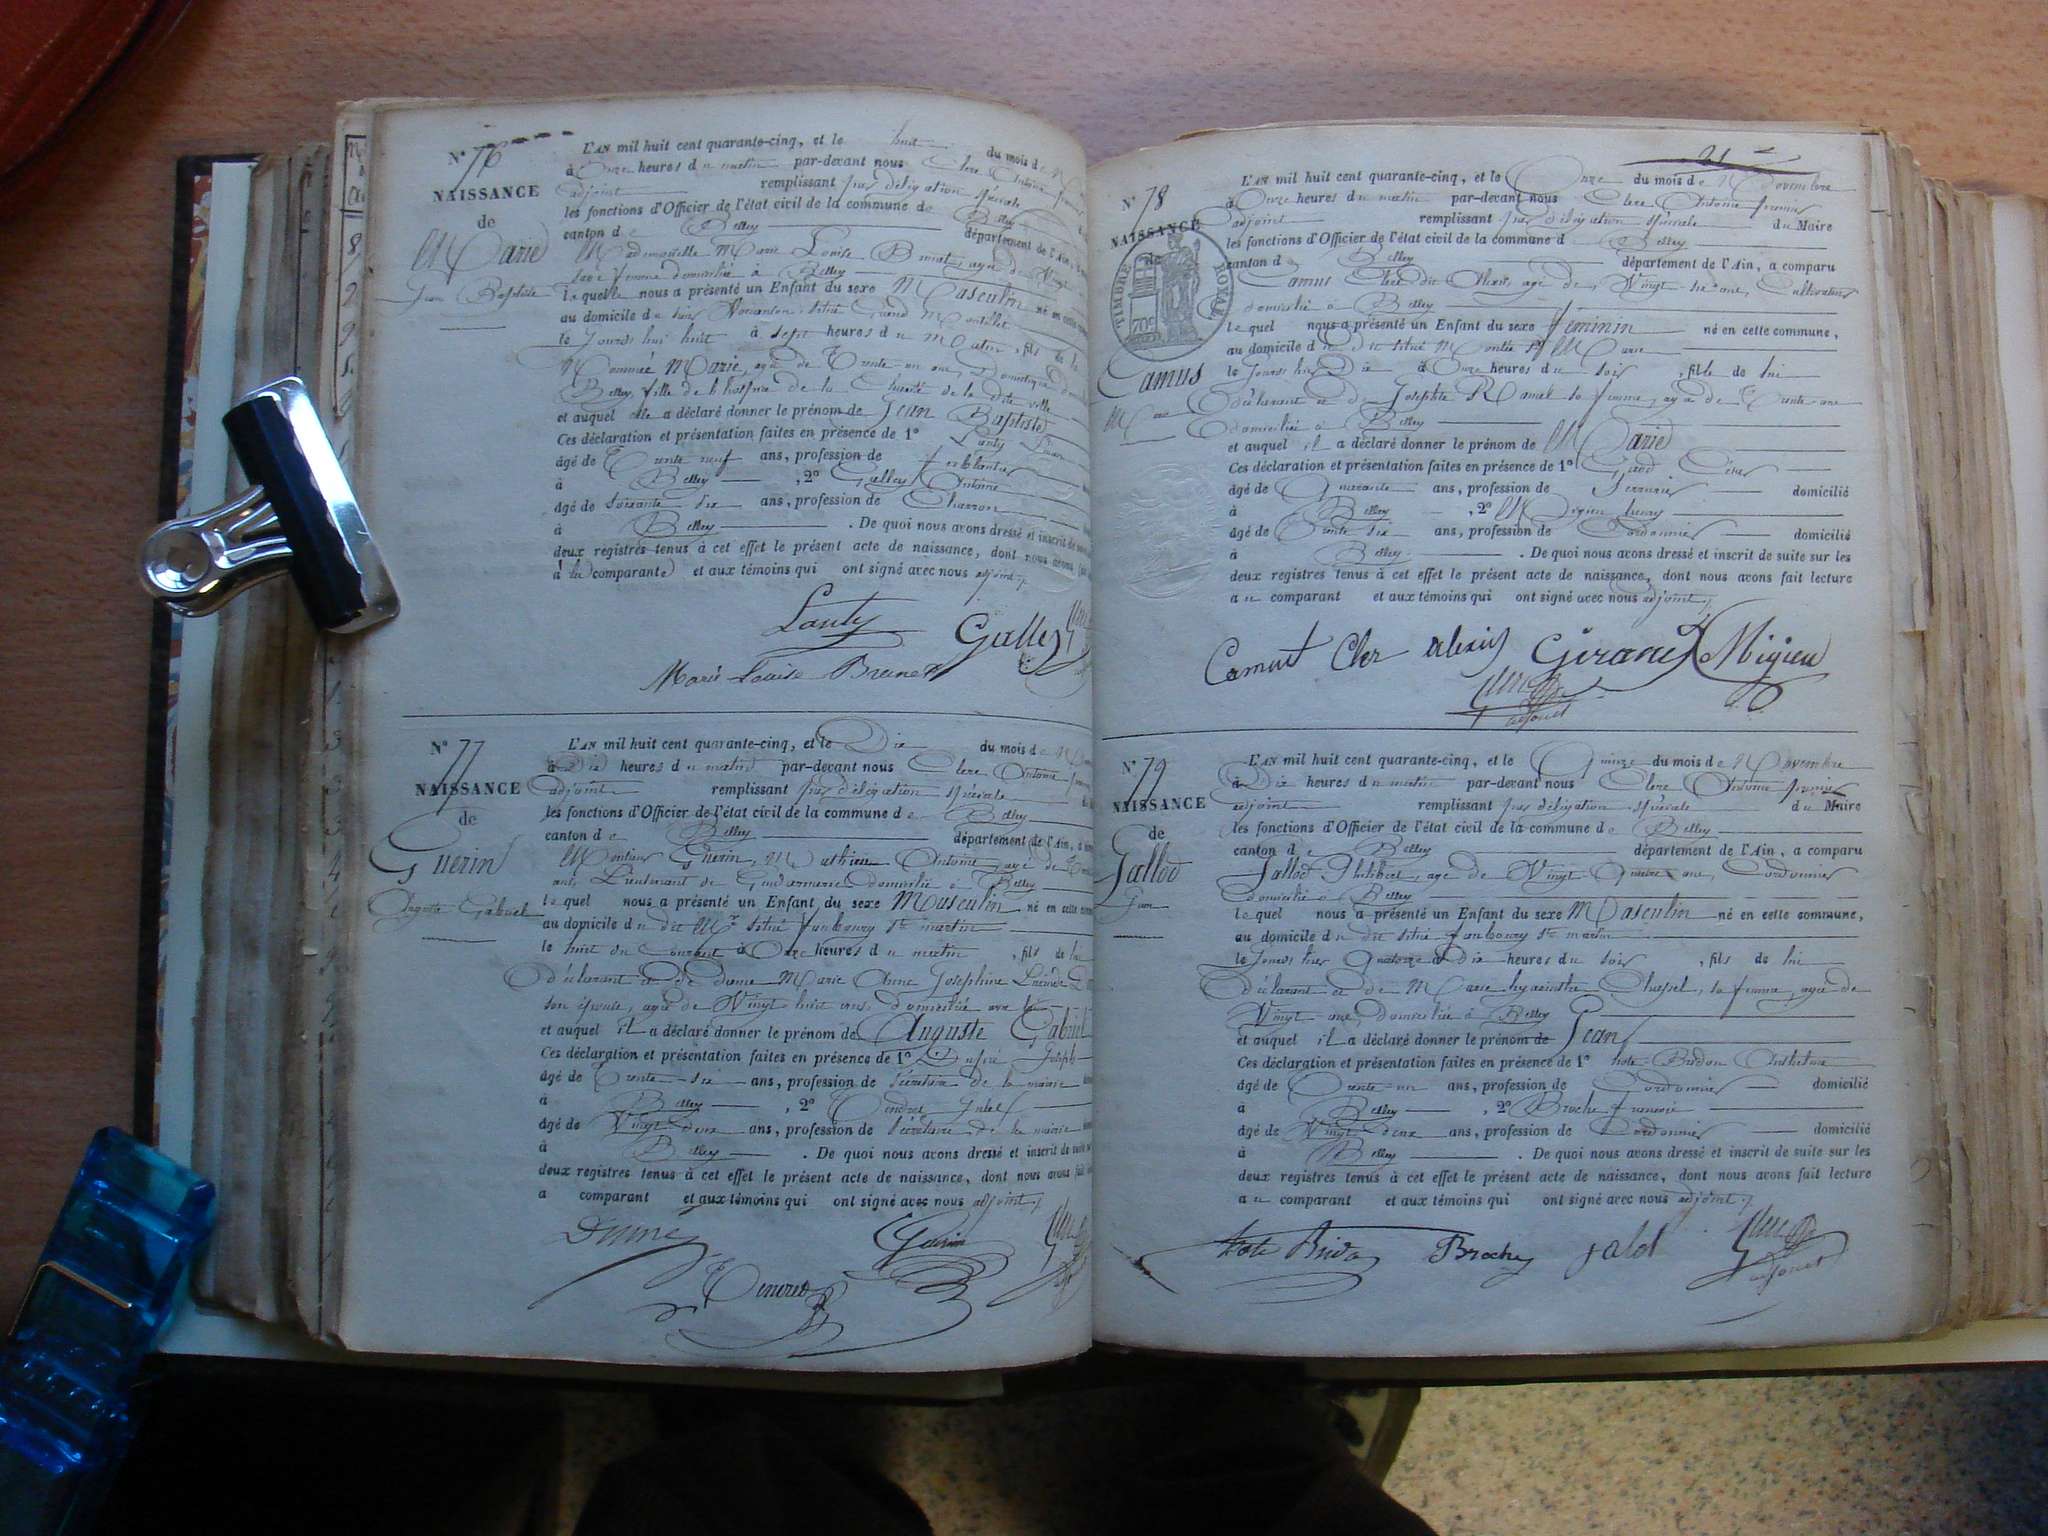 N° 76
NAISSANCE
de
Marie
Jean Baptiste
L'AN mil huit cent quarante-cinq, et le huit du mois de
à Onze heures du matin par-devant nous Clerc Antoine
adjoint remplissant par délégation spéciale
les fonctions d'Officier de l'état civil de la commune de Belley
canton de Belley département de l'Ain,
Mademoiselle Marie Louise agée de Vingt
sage femme domiciliée à Belley
lequelle nous a présenté un Enfant du sexe Masculin né en cette
au domicile de
le jourd'hui huit à sept heures du matin, fils de la
Nommée Marie, agée de Trente un ans, Domestique
Belley, fille de l'hospice de la Charité de la dite ville
et auquel elle a déclaré donner le prénom de Jean Baptiste
Ces déclaration et présentation faites en présence de 1° Lauty
âgé de Trente neuf ans, profession de ferblantier
à Belley, 2° Galley Antoine
âgé de soixante six ans, profession de Charron
à Belley. De quoi nous avons dressé et inscrit de
deux registres tenus à cet effet le présent acte de naissance, dont nous avons
à la comparante et aux témoins qui ont signé avec nous adjoint
Lauty Galley
Marie Louise Brunet
N° 77
NAISSANCE
de
Guerin
Auguste Gabriel
L'AN mil huit cent quarante-cinq, et le Dix du mois de
à Dix heures du matin par-devant nous Clerc Antoine
adjoint remplissant par délégation spéciale
les fonctions d'Officier de l'état civil de la commune de Belley
canton de Belley département de l'Ain, a
Monsieur Guerin, Mathieu Antoine, agé de
ans, Lieutenant de Gendarmerie domicilié à Belley
lequel nous a présenté un Enfant du sexe Masculin né en cette
au domicile du dit Mr situé faubourg St martin
le huit du Courant à Onze heures du matin, fils de lui
déclarant et de dame Marie Anne Josephine
son épouse, agée de Vingt huit ans, domiciliée avec lui
et auquel il a déclaré donner le prénom de Auguste Gabriel
Ces déclaration et présentation faites en présence de 1° Joseph
âgé de Trente-six ans, profession de Sécrétaire de la mairie
à Belley, 2° Tendret
âgé de Vingt deux ans, profession de Sécrétaire de la mairie
à Belley. De quoi nous avons dressé et inscrit de suite
deux registres tenus à cet effet le présent acte de naissance, dont nous avons fait
au comparant et aux témoins qui ont signé avec nous adjoint
Guerin
Tendret
21
N° 78
NAISSANCE
de
TIMBRE ROYAL
70c
Camus
Marie
L'AN mil huit cent quarante-cinq, et le Onze du mois de Novembre
à Onze heures du matin par-devant nous Clerc Antoine premier
adjoint remplissant par délégation spéciale du Maire
les fonctions d'Officier de l'état civil de la commune de Belley
canton de Belley département de l'Ain, a comparu
Camus Cler dit Alexis, agé de Vingt ans, Cultivateur
domicilié à Belley
lequel nous a présenté un Enfant du sexe féminin né en cette commune,
au domicile du dit situé Montée Ste Marie
le jourd'hier Dix à Onze heures du soir, fille de lui
Déclarant et de Josephte Ravet sa femme, agée de Trente ans
domiciliée à Belley
et auquel il a déclaré donner le prénom de Marie
Ces déclaration et présentation faites en présence de 1°
âgé de Quarante ans, profession de Serrurier domicilié
à Belley, 2° Migieu henry
âgé de Trente six ans, profession de Cordonnier domicilié
à Belley. De quoi nous avons dressé et inscrit de suite sur les
deux registres tenus à cet effet le présent acte de naissance, dont nous avons fait lecture
au comparant et aux témoins qui ont signé avec nous adjoint
Camus Cler alexis Migieu
adjoint
N° 79
NAISSANCE
de
Jallod
Jean
L'AN mil huit cent quarante-cinq, et le Quinze du mois de Novembre
à Dix heures du matin par-devant nous Clerc Antoine premier
adjoint remplissant par délégation spéciale du Maire
les fonctions d'Officier de l'état civil de la commune de Belley
canton de Belley département de l'Ain, a comparu
Jallod Philibert, agé de Vingt Quatre ans, Cordonnier
domicilié à Belley
lequel nous a présenté un Enfant du sexe Masculin né en cette commune,
au domicile du dit situé faubourg St martin
le jourd'hier Quatorze à Dix heures du soir, fils de lui
Déclarant et de Marie hyacinthe Chapel, sa femme, agée de
Vingt ans, domiciliée à Belley
et auquel il a déclaré donner le prénom de Jean
Ces déclaration et présentation faites en présence de 1° Anthelme
âgé de Trente-un ans, profession de Cordonnier domicilié
à Belley, 2° Broche françois
âgé de Vingt deux ans, profession de Cordonnier domicilié
à Belley. De quoi nous avons dressé et inscrit de suite sur les
deux registres tenus à cet effet le présent acte de naissance, dont nous avons fait lecture
au comparant et aux témoins qui ont signé avec nous adjoint
Broche jalod
adjoint